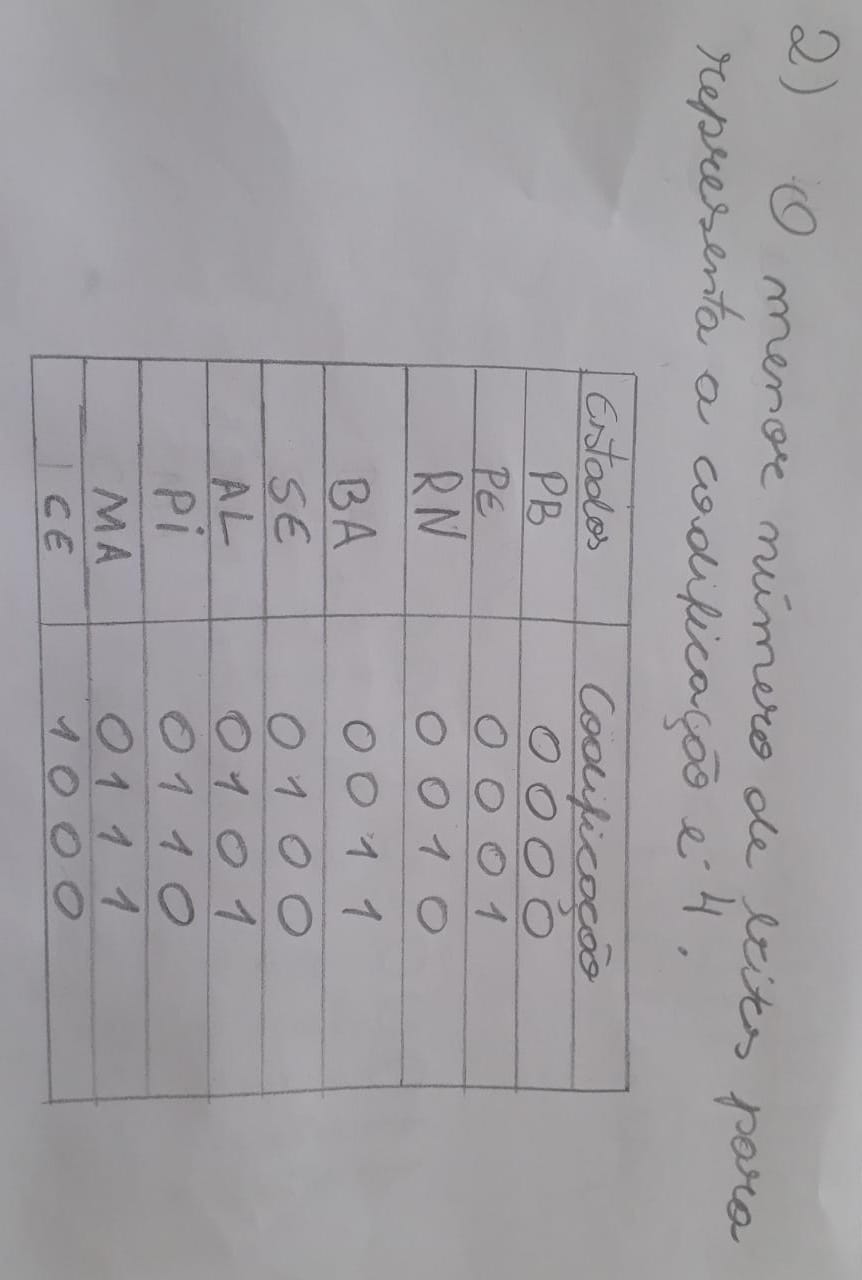 2) O menor número de bits para
representa a codificação é 4.
Estados Codificação
PB 0000
PE 0001
RN 0010
BA 0011
SE 0100
AL 0101
Pi 0110
MA 0111
CE 1000